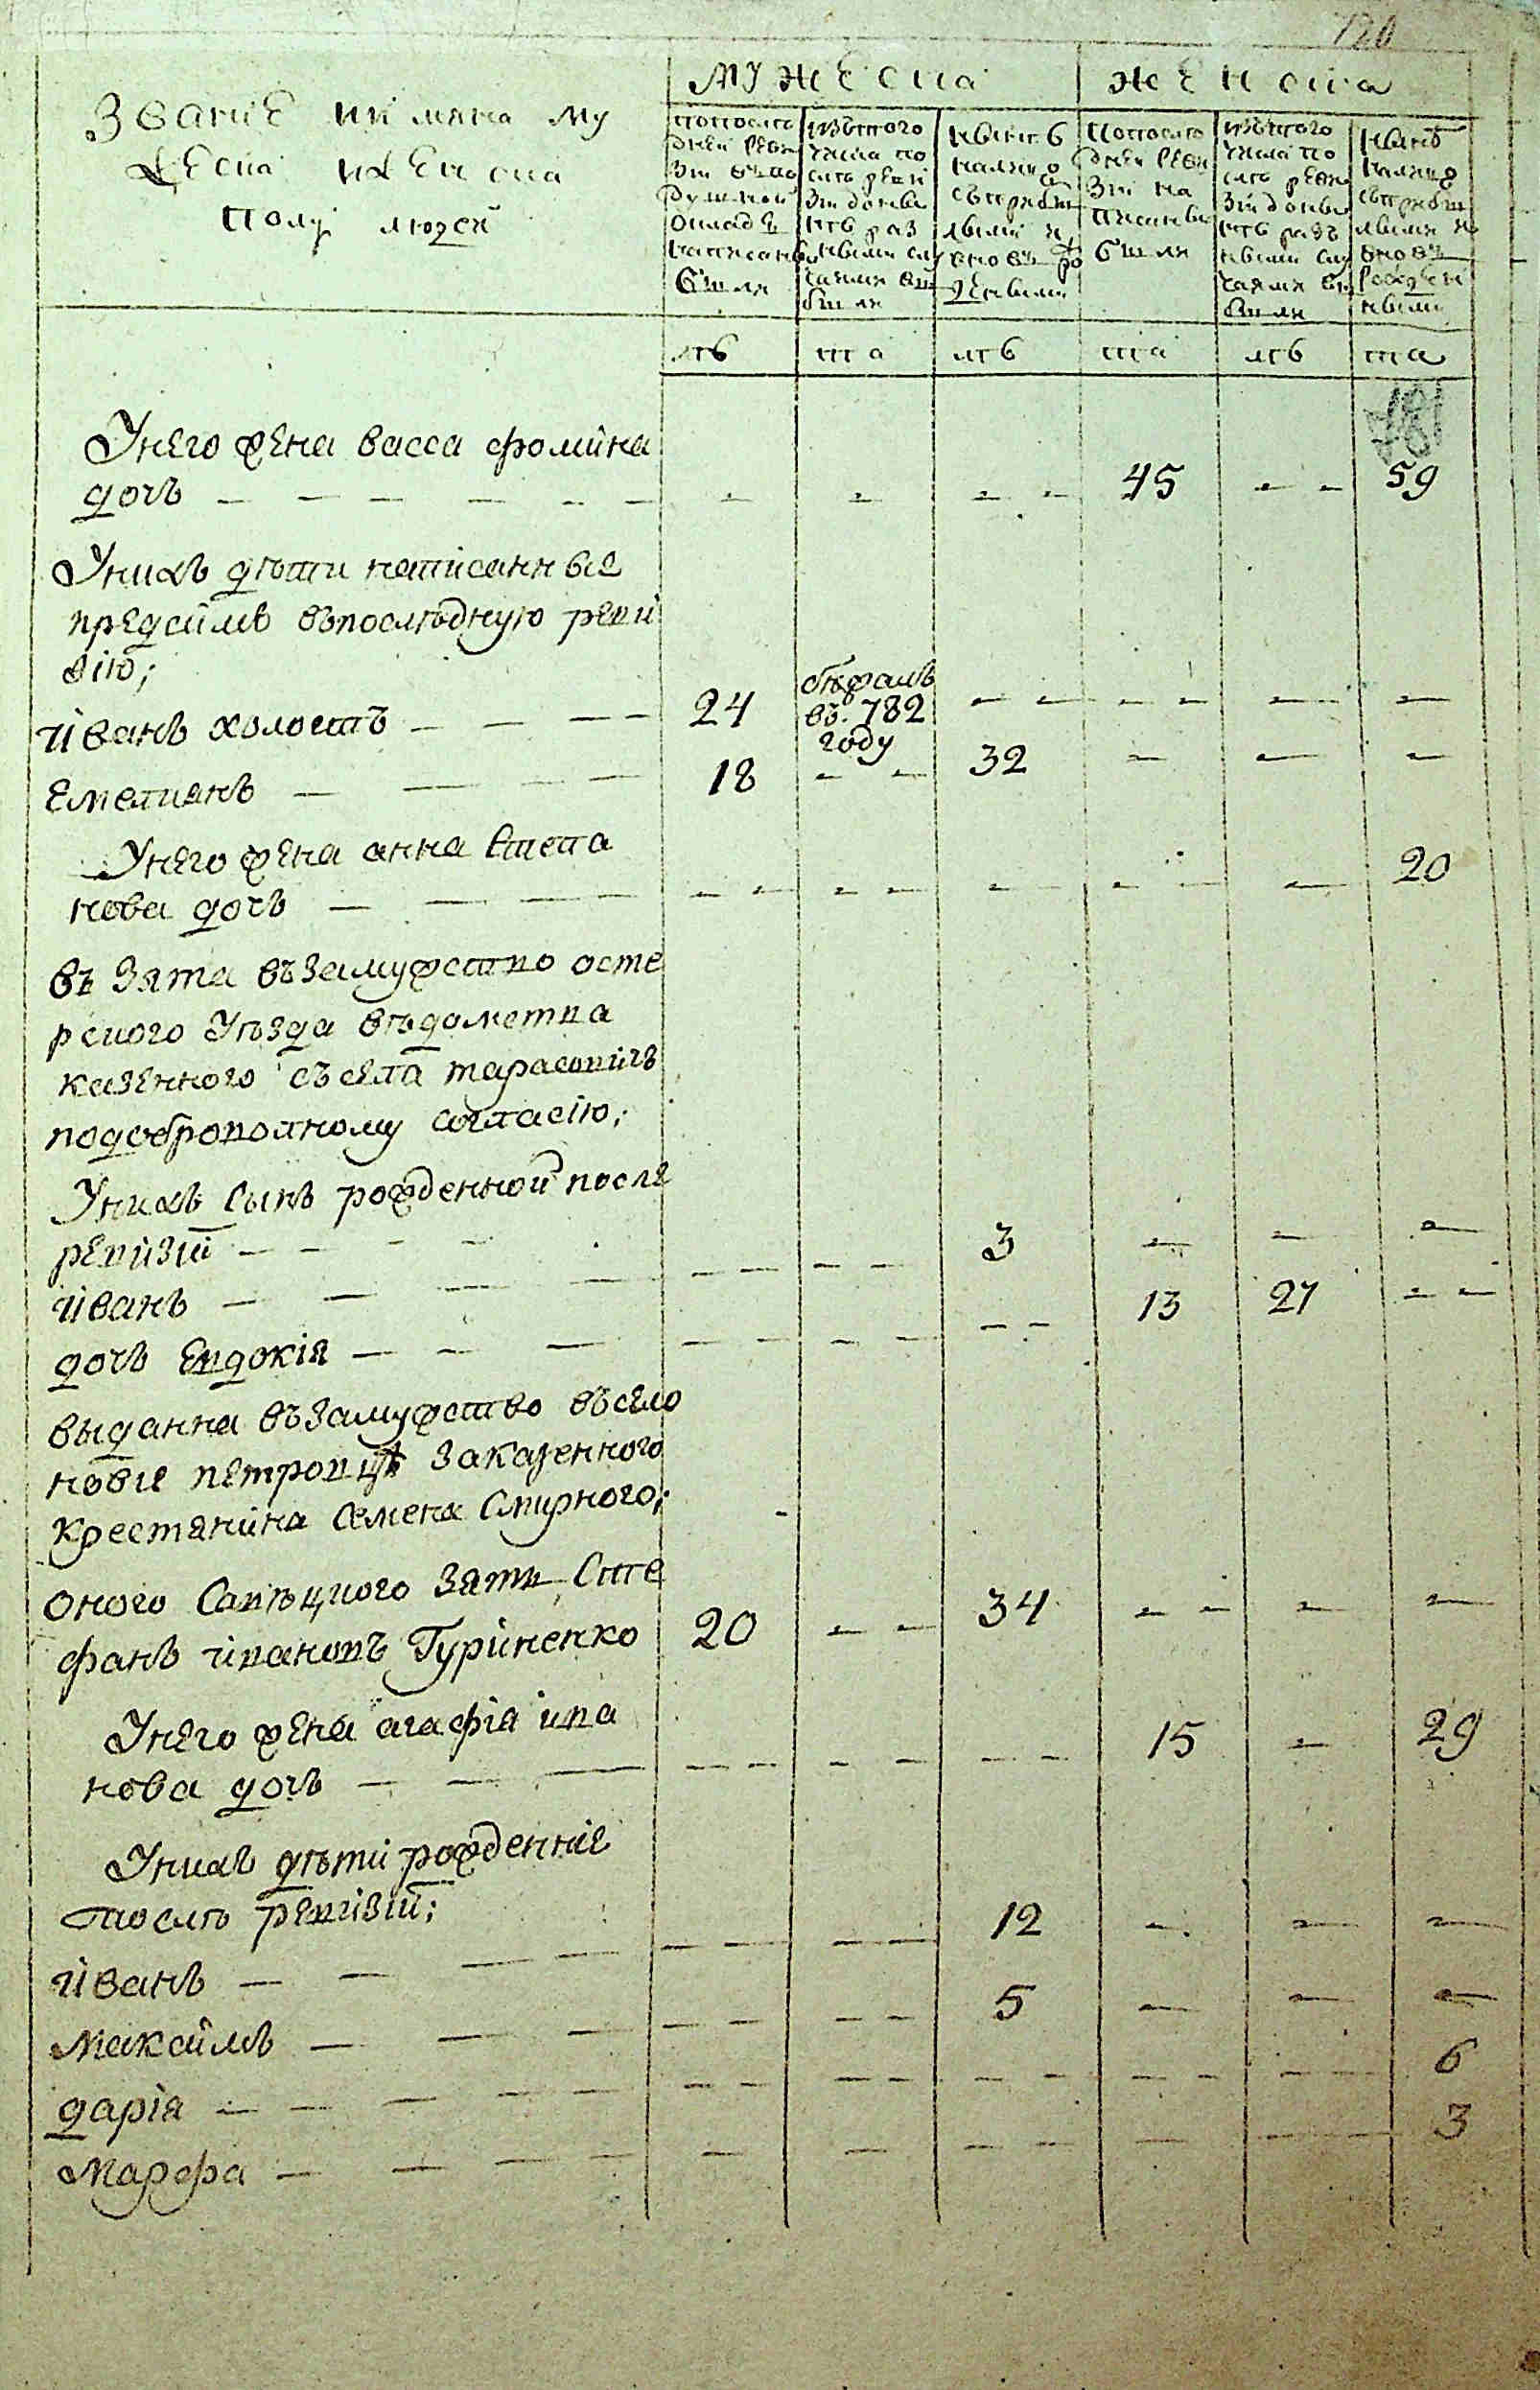 720
Званіе иимяна му
жеска иженска
полу людей
мужеска
женска
попосле
дней реви
зіи въпо
душной
окладъ
написаны
были
изътого
числа по
слѣ реви
зіи доны
нѣ раз
ными слу
чаями вы
были
нынѣ
налицо
съприбы
лыми и
вновь ро
ждеными
попосле
дней реви
зіи на
писаны
были
изътого
числа по
слѣ реви
зіи доны
нѣ разъ
ными слу
чаями вы
были
нынѣ
налицо
съприбы
лыми и
вновь
рожден
ными
лѣ
та
лѣ
та
лѣ
та
781
Унего жена васса фомина
дочь — — — — — — — — — — 45 — — 59
Унихъ дѣти написанные
предсимъ въпослѣдную реви
зію;
иванъ холостъ — — — — 24 бѣжалъ въ 782 году — — — — — —
емелианъ — — — — 18 — — 32 — — —
Унего жена анна степа
нова дочь — — — — — — — — — — — — 20
въ зята възамужство осте
рского Уѣзда вѣдометва
казенного съ села тарасовичъ
подоброволному согласію;
Унихъ сынъ рожденной после
ревизіи — — — —
иванъ — — — — — — — — — 3 — — —
дочь Евдокія — — — — — — — — — 13 27 — —
выданна възамужство въсело
новіе петровцѣ заказенного
крестянина Семена Смирного;
оного Савѣцкого зять Сте
фанъ ивановъ Гуриненко 20 — — 34 — — — —
Унего жена агафія ива
нова дочь — — — — — — — — — 15 — 29
Унихъ дѣти рожденніе
послѣ ревизіи;
иванъ — — — — — — — — 12 — — —
максимъ — — — — — — — 5 — — —
дарія — — — — — — — — — — — — — — — 6
Марфа — — — — — — — — — — — 3